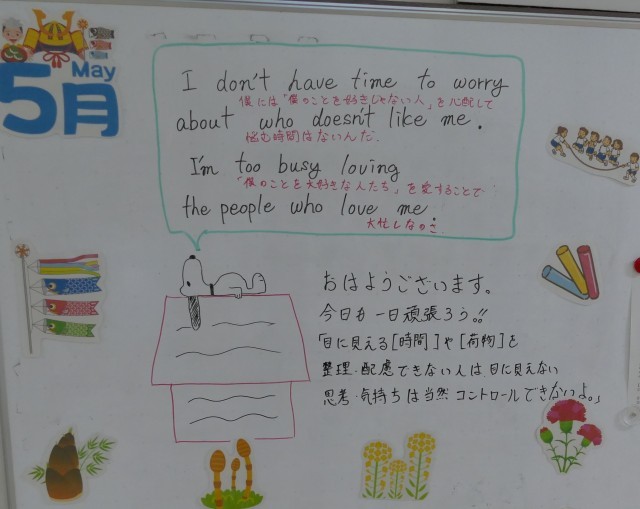 May
5月
I don't have time to worry
僕には「僕のことを好きじゃない人」を心配して
about who doesn't like me.
悩む時間はないんだ.
I'm too busy loving
「僕のことを大好きな人たち」を愛することで
the people who love me.
大忙しなのさ.
おはようございます。
今日も一日頑張ろう!!
「目に見える[時間]や[荷物]を
整理・配慮できない人は、目に見えない
思考・気持ちは当然コントロールできないよ。」